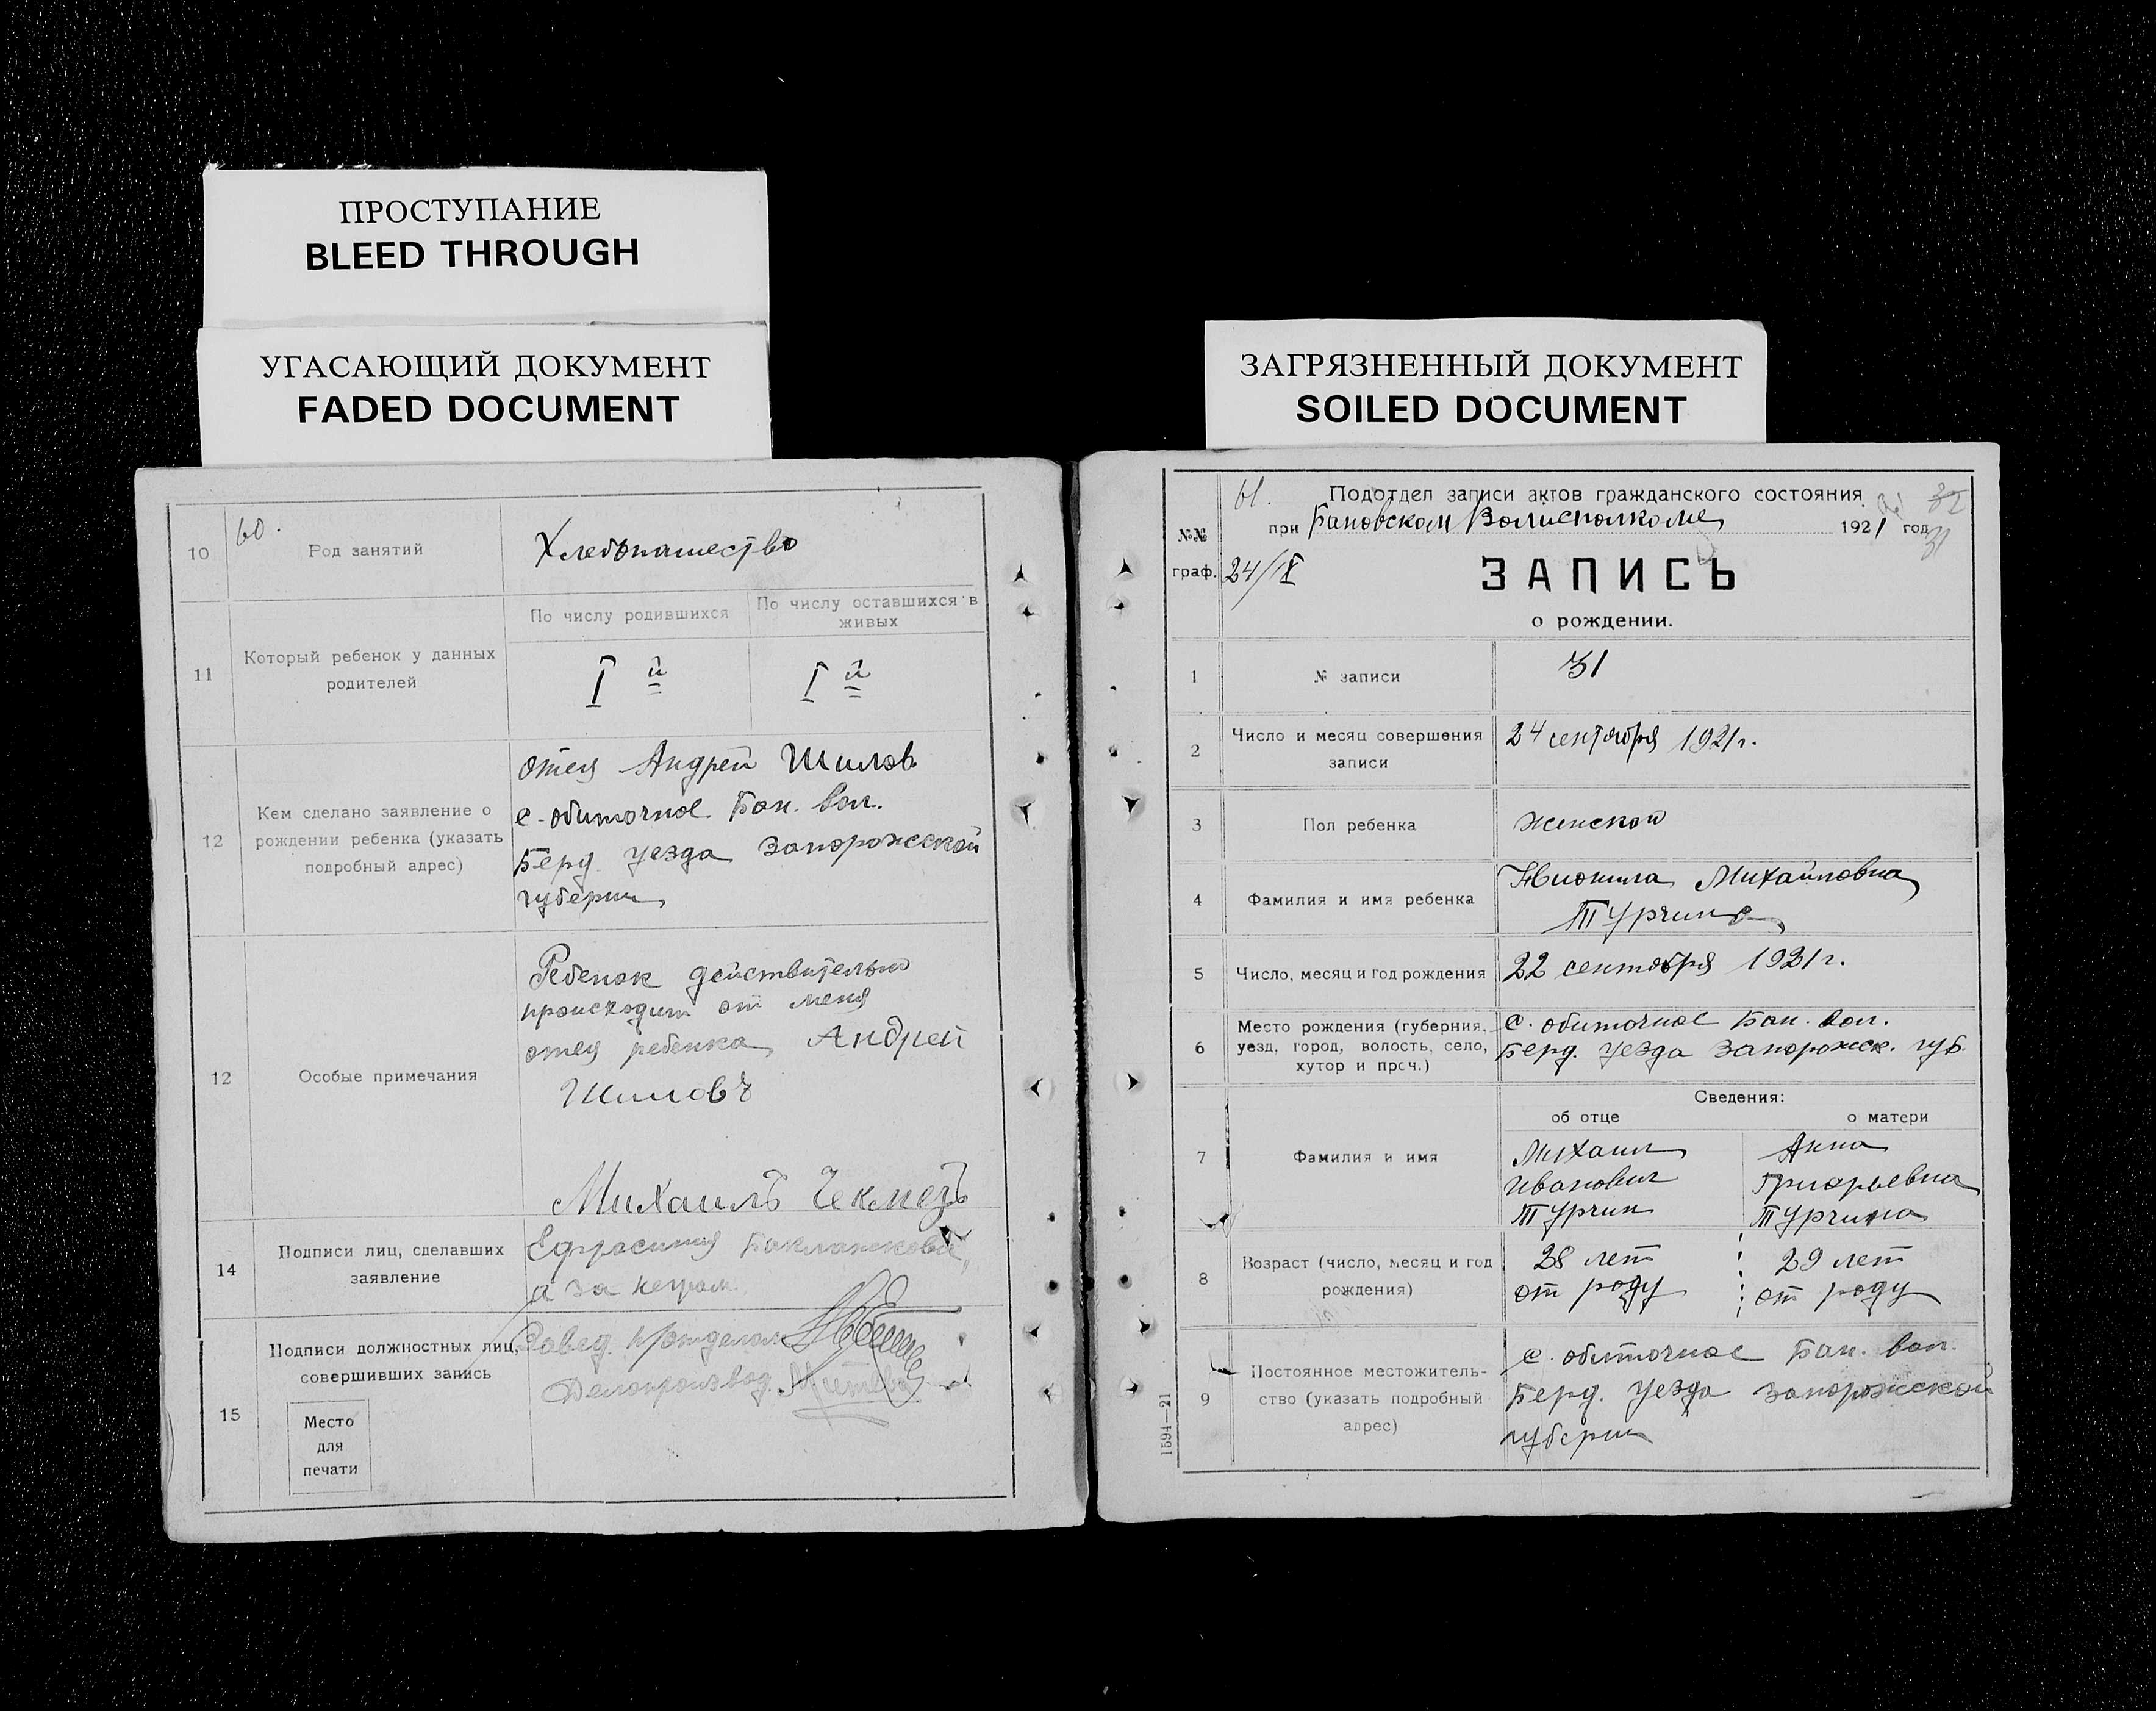 ПРОСТУПАНИЕ
BLEED THROUGH
УГАСАЮЩИЙ ДОКУМЕНТ
FADED DOCUMENT
60.
10
Род занятий
Хлебопашество
11
Который ребенок у данных
родителей
По числу родившихся
По числу оставшихся в
живых
I й
I й
12
Кем сделано заявление о
рождении ребенка (указать
подробный адрес)
отец Андрей Шилов
с. обиточное Бан. вол.
Берд. уезда Запорожской
губерни
12
Особые примечания
Ребенок действительно
происходит от меня
отец ребенка Андрей
Шиловъ
Михаилъ
14
Подписи лиц, сделавших
заявление
Ефросиния
а за неграм.
15
Подписи должностных лиц,
совершивших запись
Завед. п/отделом
Делопроизвод.
Место
для
печати
ЗАГРЯЗНЕННЫЙ ДОКУМЕНТ
SOILED DOCUMENT
61.
Подотдел записи актов гражданского состояния
32
31
при Бановском Волисполкоме 1921 год
№№
граф.
24/IX
ЗАПИСЬ
о рождении.
1
№ записи
31
2
Число и месяц совершения
записи
24 сентября 1921 г.
3
Пол ребенка
женской
4
Фамилия и имя ребенка
Михайловна
Турчина
5
Число, месяц и год рождения
22 сентября 1921 г.
6
Место рождения (губерния,
уезд, город, волость, село,
хутор и проч.)
с. обиточное Бан. вол.
Берд. уезда Запорожск. губ.
Сведения:
об отце
о матери
7
Фамилия и имя
Михаил
Иванович
Турчин
Анна
Григорьевна
Турчина
8
Возраст (число, месяц и год
рождения)
28 лет
от роду
29 лет
от роду
9
Постоянное местожитель-
ство (указать подробный
адрес)
с. обиточное Бан. вол.
Берд. уезда Запорожской
губерни
1594—21